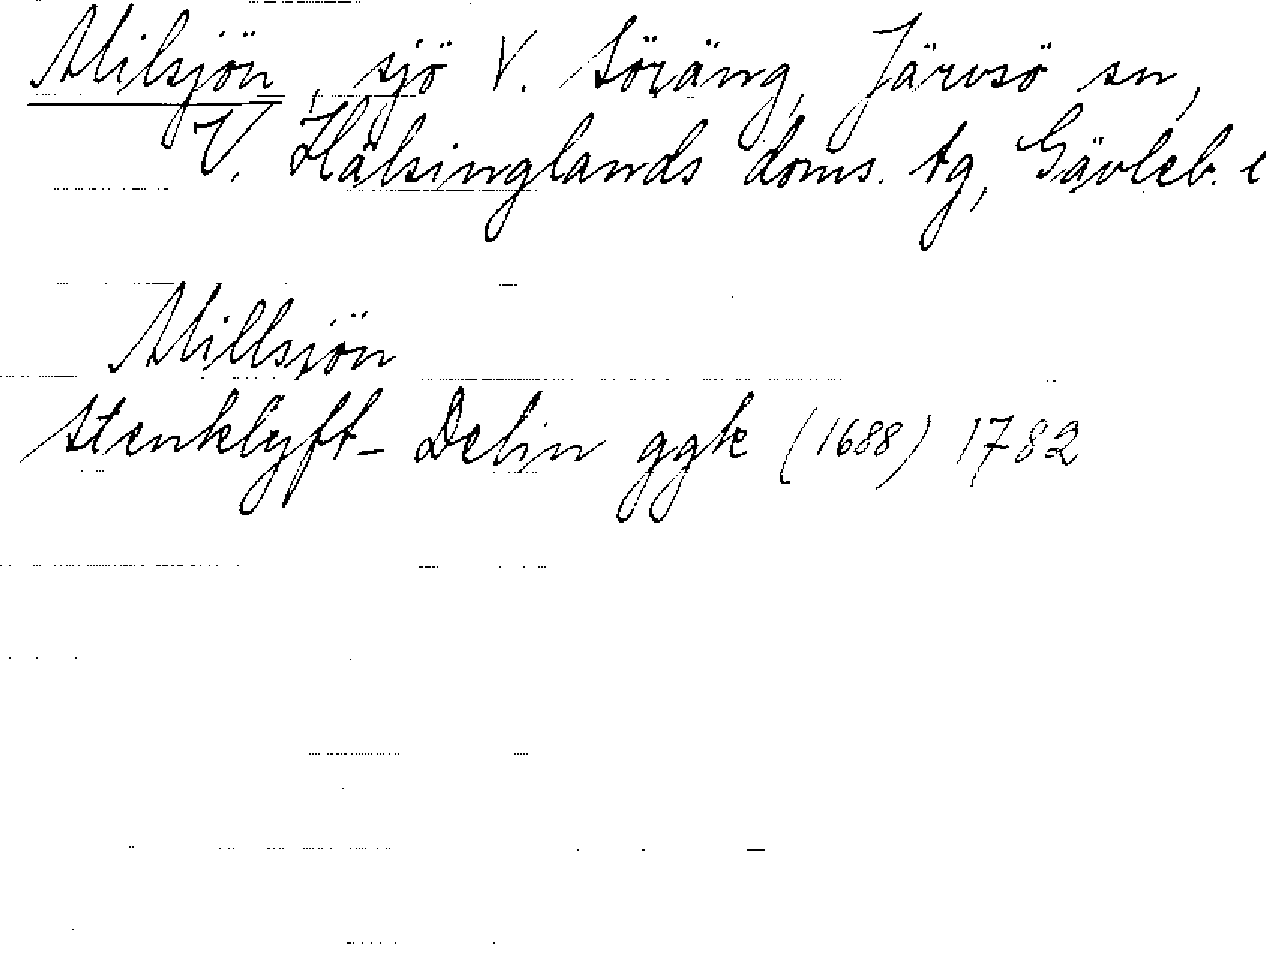 Milsjön, sjö V. Söräng, Järvsö sn,
V. Hälsinglands doms. tg, Gävleb. l
Millsjön
Stenklyft- Delin ggk (1688) 1782